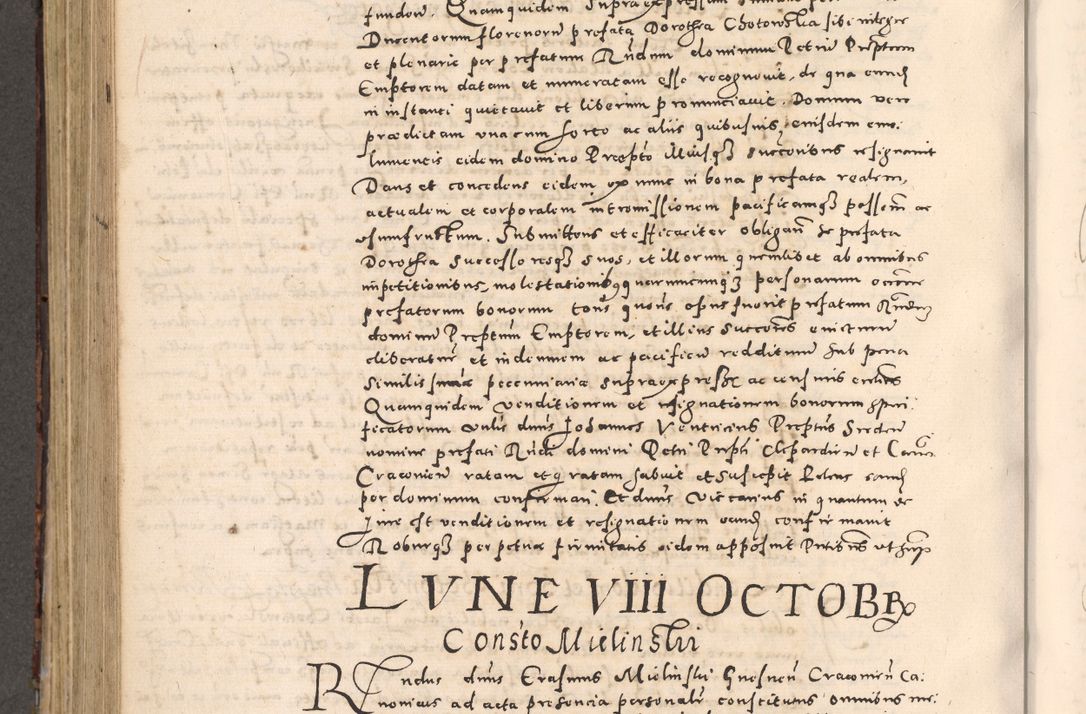 fundow. Quamquidem supraexpressam summam
Ducentorum florenorum prefata Dorothea Chotowska sibi integre
et plenarie per prefatum Rndum dominum Petrum Preptum
Emptorem datam et numeratam esse recognovit, de qua eund
in instanti quietavit et liberum pronunciavit. Domum vero
praedictam una cum horto ac aliis quibusvis eiusdem emo:
lumentis eidem domino Prepto suisq3 successoribus resignavit
Dans et concedens eidem ex nunc in bona prefata realem,
actualem et corporalem intromissionem pacificamq3 possem ac
usumfructum. Submittens et efficaciter obligan se prefata
Dorothea successoresq3 suos, et illorum quemlibet ab omnibus
impetitionibus, molestationibq quarumcunq3 personarum occne
prefatorum bonorum tocies quocies opus fuerit prefatum Rndum
dominum Preptum Emptorem, et illius successores evicturum
liberaturum et indemnem ac pacificum redditurum sub pena
similis summae pecuniariae supraexpressae ac censuris ecclis
Quamquidem venditionem et resignationem bonorum speci:
ficatorum vnlis dnus Joannes Venticius Preptus Sreden
nomine prefati Rndi domini Petri Prepti Clepardien et Canci
Cracovien ratam et gratam habuit et suscepit Petens eand
per dominum confirmari. Et dnus Vicarius in quantum de
Jure est venditionem et resignationem eand confirmavit
Roburq3 perpetuae firmitatis eidem apposuit Pntibus ut supra
LVNE VIII OCTOBR
Consto Mielinskii
Rndus dnus Erasmus Mielinski Gnesnen Cracovien Ca:
nonicus ad acta presencia personalr constitutus omnibus me: